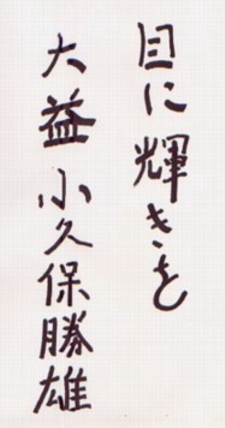 目に輝きを
大益 小久保勝雄